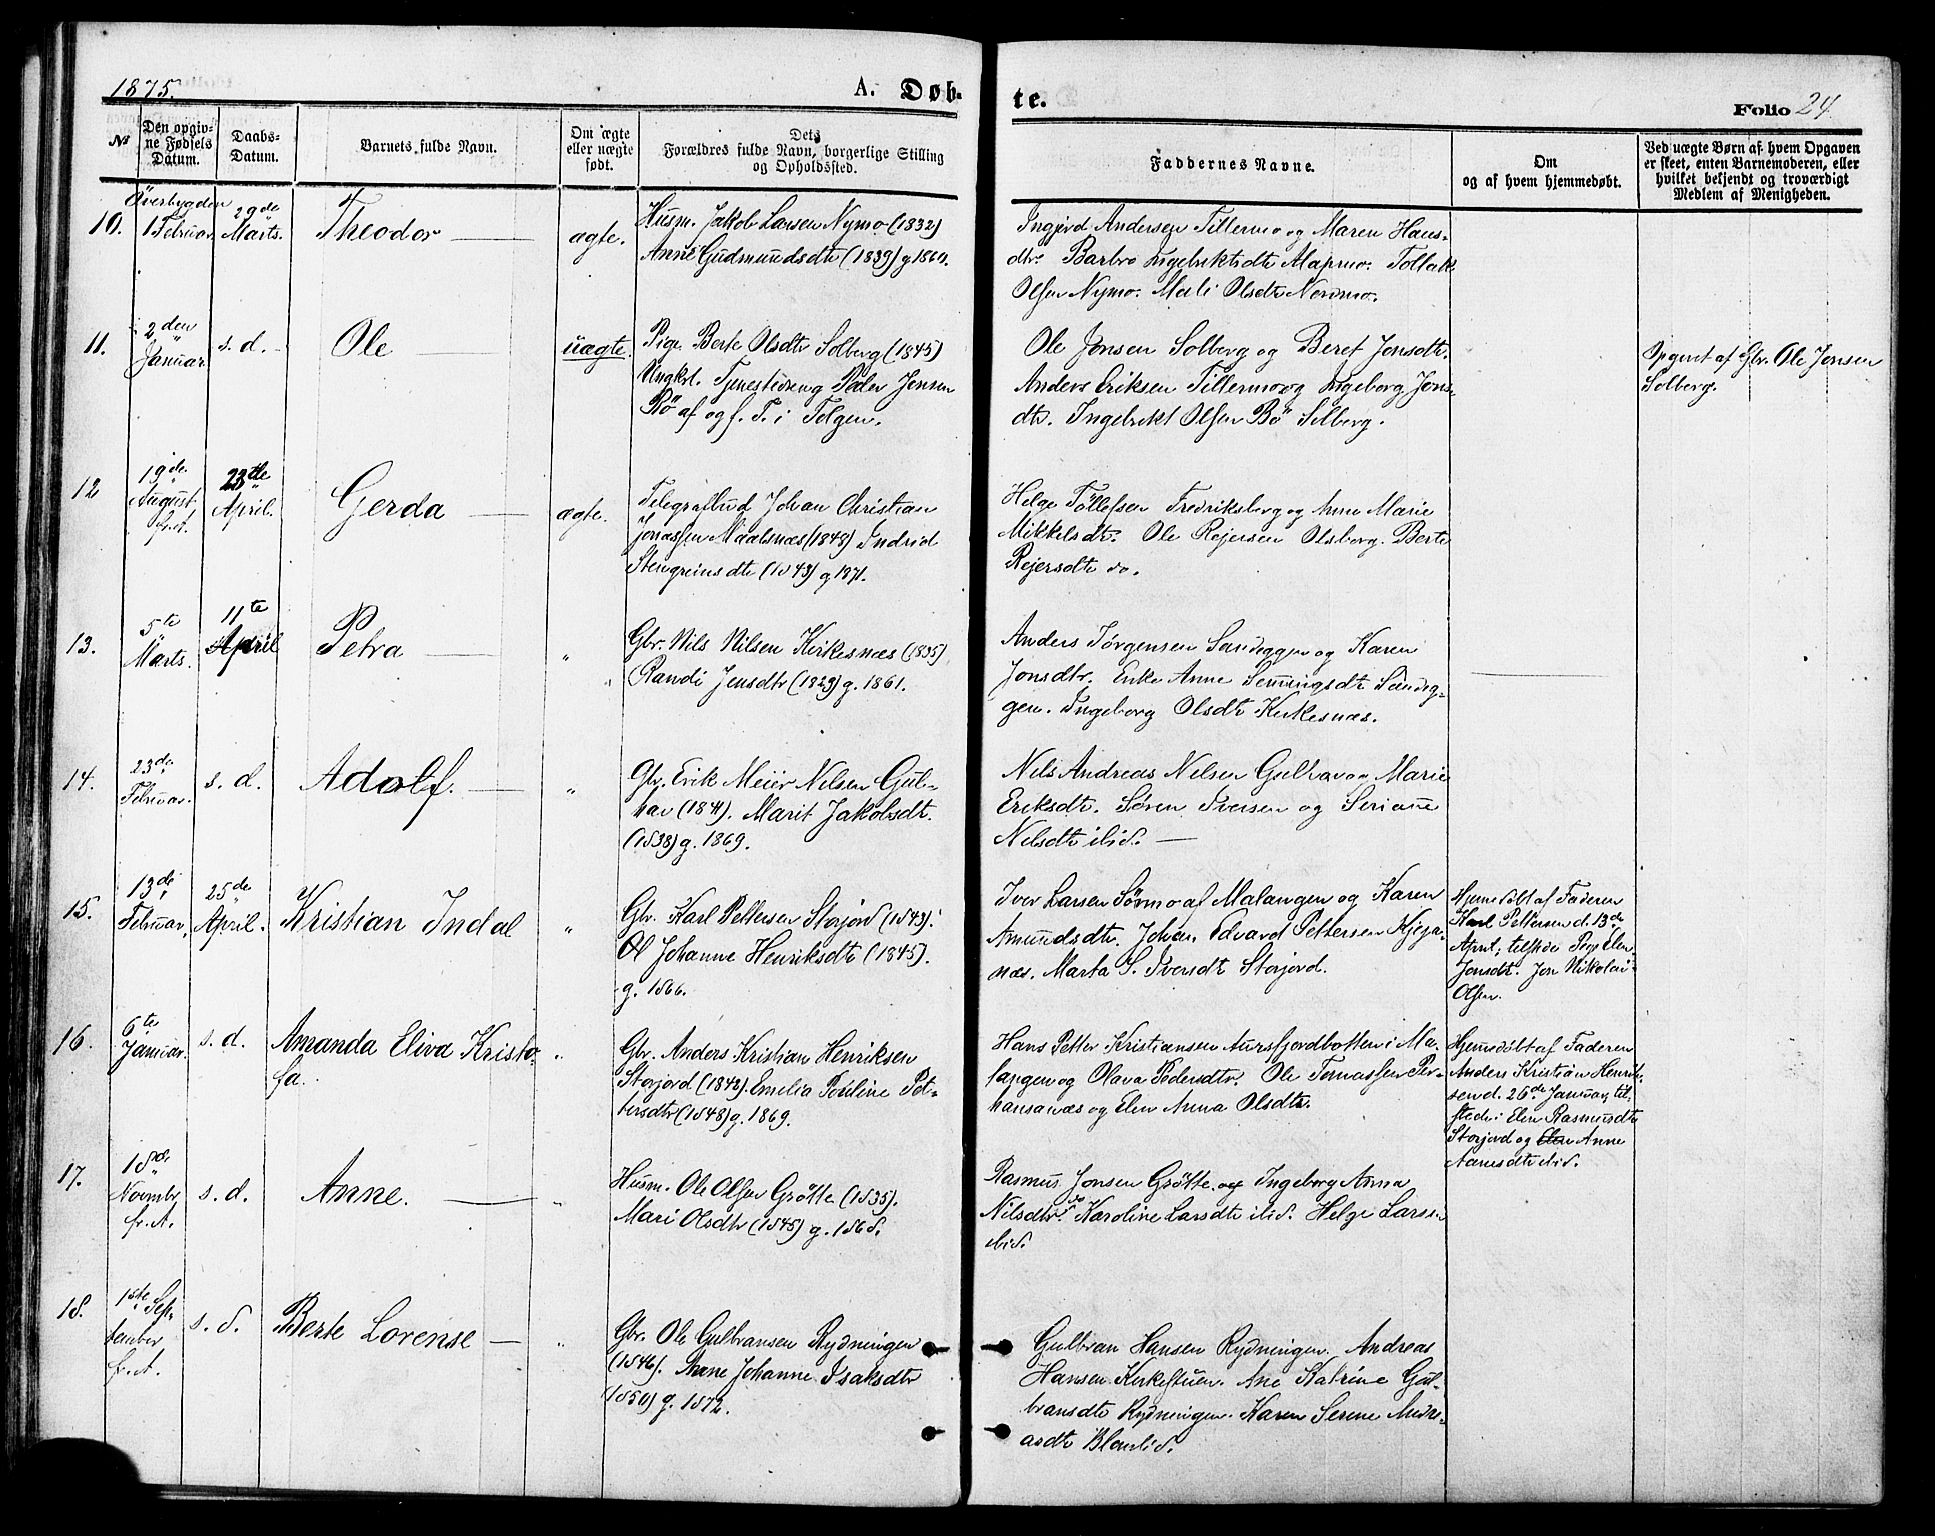 1875.
A. Døb-
te.
Folio 24.
№
Den opgiv-
ne Fødsels
Datum.
Daabs-
Datum.
Barnets fulde Navn.
Om ægte
eller uægte
født.
Dets
Forældres fulde Navn, borgerlige Stilling
og Opholdssted.
Faddernes Navne.
Om
og af hvem hjemmedøbt.
Ved uægte Børn af hvem Opgaven
er skeet, enten Barnemoderen, eller
hvilket bekjendt og troværdigt
Medlem af Menigheden.
Överbygden
10.
1 Februar
29de
Marts.
Theodor
ægte.
Husm. Jakob Larsen Nymo (1832)
Anne Gudmundsdtr (1839) g 1860.
Ingjerd Andersen Fillermo og Maren Hans-
dtr. Barbro Ingebriktsdtr Alapmo. Tollak
Olsen Nymo. Mali Olsdtr Nordmo.
11.
2den
Januar.
s. d.
Ole
uægte.
Pige Berte Olsdtr Solberg (1845)
Ungkrl. Tjenestedreng Peder Jensen
Rö af og f. T. i Tolgen.
Ole Jonsen Solberg og Beret Jonsdtr.
Anders Eriksen Fillermo og Ingeborg Jons-
dtr. Ingebrikt Olsen Bö Solberg.
Opgivet af Gbr. Ole Jonsen
Solberg.
12
19de
August
f. A.
23de
April.
Gerda
ægte.
Telegrafbud Johan Christian
Jonassen Maalsnæs (1848) Indrid
Stengrimsdtr (1843) g 1871.
Helge Töllefsen Fredriksberg og Anne Marie
Mikkelsdtr. Ole Rejersen Olsborg. Berte
Rejersdtr do.
13.
5te
Marts.
11te
April
Petra
"
Gbr. Nils Nilsen Kirkesnæs (1835)
Randi Jensdtr (1823) g. 1861.
Anders Jørgensen Sandeggen og Karen
Jonsdtr. Enke Anne Semingsdtr Sandeg-
gen. Ingeborg Olsdtr Kirkesnæs.
14.
23de
Februar.
s. d.
Adolf.
"
Gbr. Erik Meier Nilsen Gul-
hav (1841). Marit Jakobsdtr.
(1838) g. 1869.
Nils Andreas Nilsen Gulhav og Marie
Eriksdtr. Søren Iversen og Serianne
Nilsdtr ibid.
15.
13de
Februar,
25de
April.
Kristian Indal
"
Gbr. Karl Pettersen Storjord (1843).
Ol Johanne Henriksdtr (1845).
g. 1866.
Iver Larsen Sørmo af Malangen og Karen
Amundsdtr. Johan Edvard Pettersen Kjeja-
næs. Marta S. Iversdtr Storjord.
Hjemmedöbt af Faderen
Karl Pettersen d. 13de
April; tilstede Pige Elen
Jonsdtr. Jon Nikolai
Olsen.
16.
6te
Januar.
s. d.
Amanda Eliva Kristo-
fa.
"
Gbr. Anders Kristian Henriksen
Storjord (1848). Emelia Pauline Pet-
tersdtr (1848) g. 1869.
Hans Petter Kristiansen Aursfjordbotten i Ma-
langen og Olava Pedersdtr. Ole Tomassen Per-
hansanæs og Elen Anna Olsdtr.
Hjemmedöbt af Faderen
Anders Kristian Henrik-
sen d. 26de Januar, til-
stede: Elen Rasmusdtr
Storjord og Elen Anne
Aanesdtr ibid.
17.
18de
Novmbr
fr. A.
s. d.
Anne.
"
Husm. Ole Olsen Grötte (1835).
Mari Olsdtr (1845) g. 1868.
Rasmus Jonsen Grötte og Ingeborg Anna
Nilsdtr do Karoline Larsdtr ibid. Helge Larsen
ibid.
18.
1ste Sep-
tember
fr. A.
s. d.
Berte Lorense
"
Gbr. Ole Gulbransen Rydningen
(1846). Anne Johanne Isaksdtr
(1850) g. 1872.
Gulbran Hansen Rydningen. Andreas
Hansen Kirkestuen. Ane Katrine Gul-
bransdtr Rydningen. Karen Serine Andre-
asdtr Blomlid.